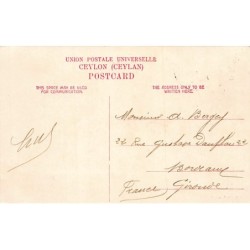 UNION POSTALE UNIVERSELLE
CEYLON (CEYLAN)
POSTCARD
THIS SPACE MAY BE USED
FOR COMMUNICATION.
THE ADDRESS ONLY TO BE
WRITTEN HERE.
Monsieur A.
Rue Gustave
Bordeaux
France Gironde